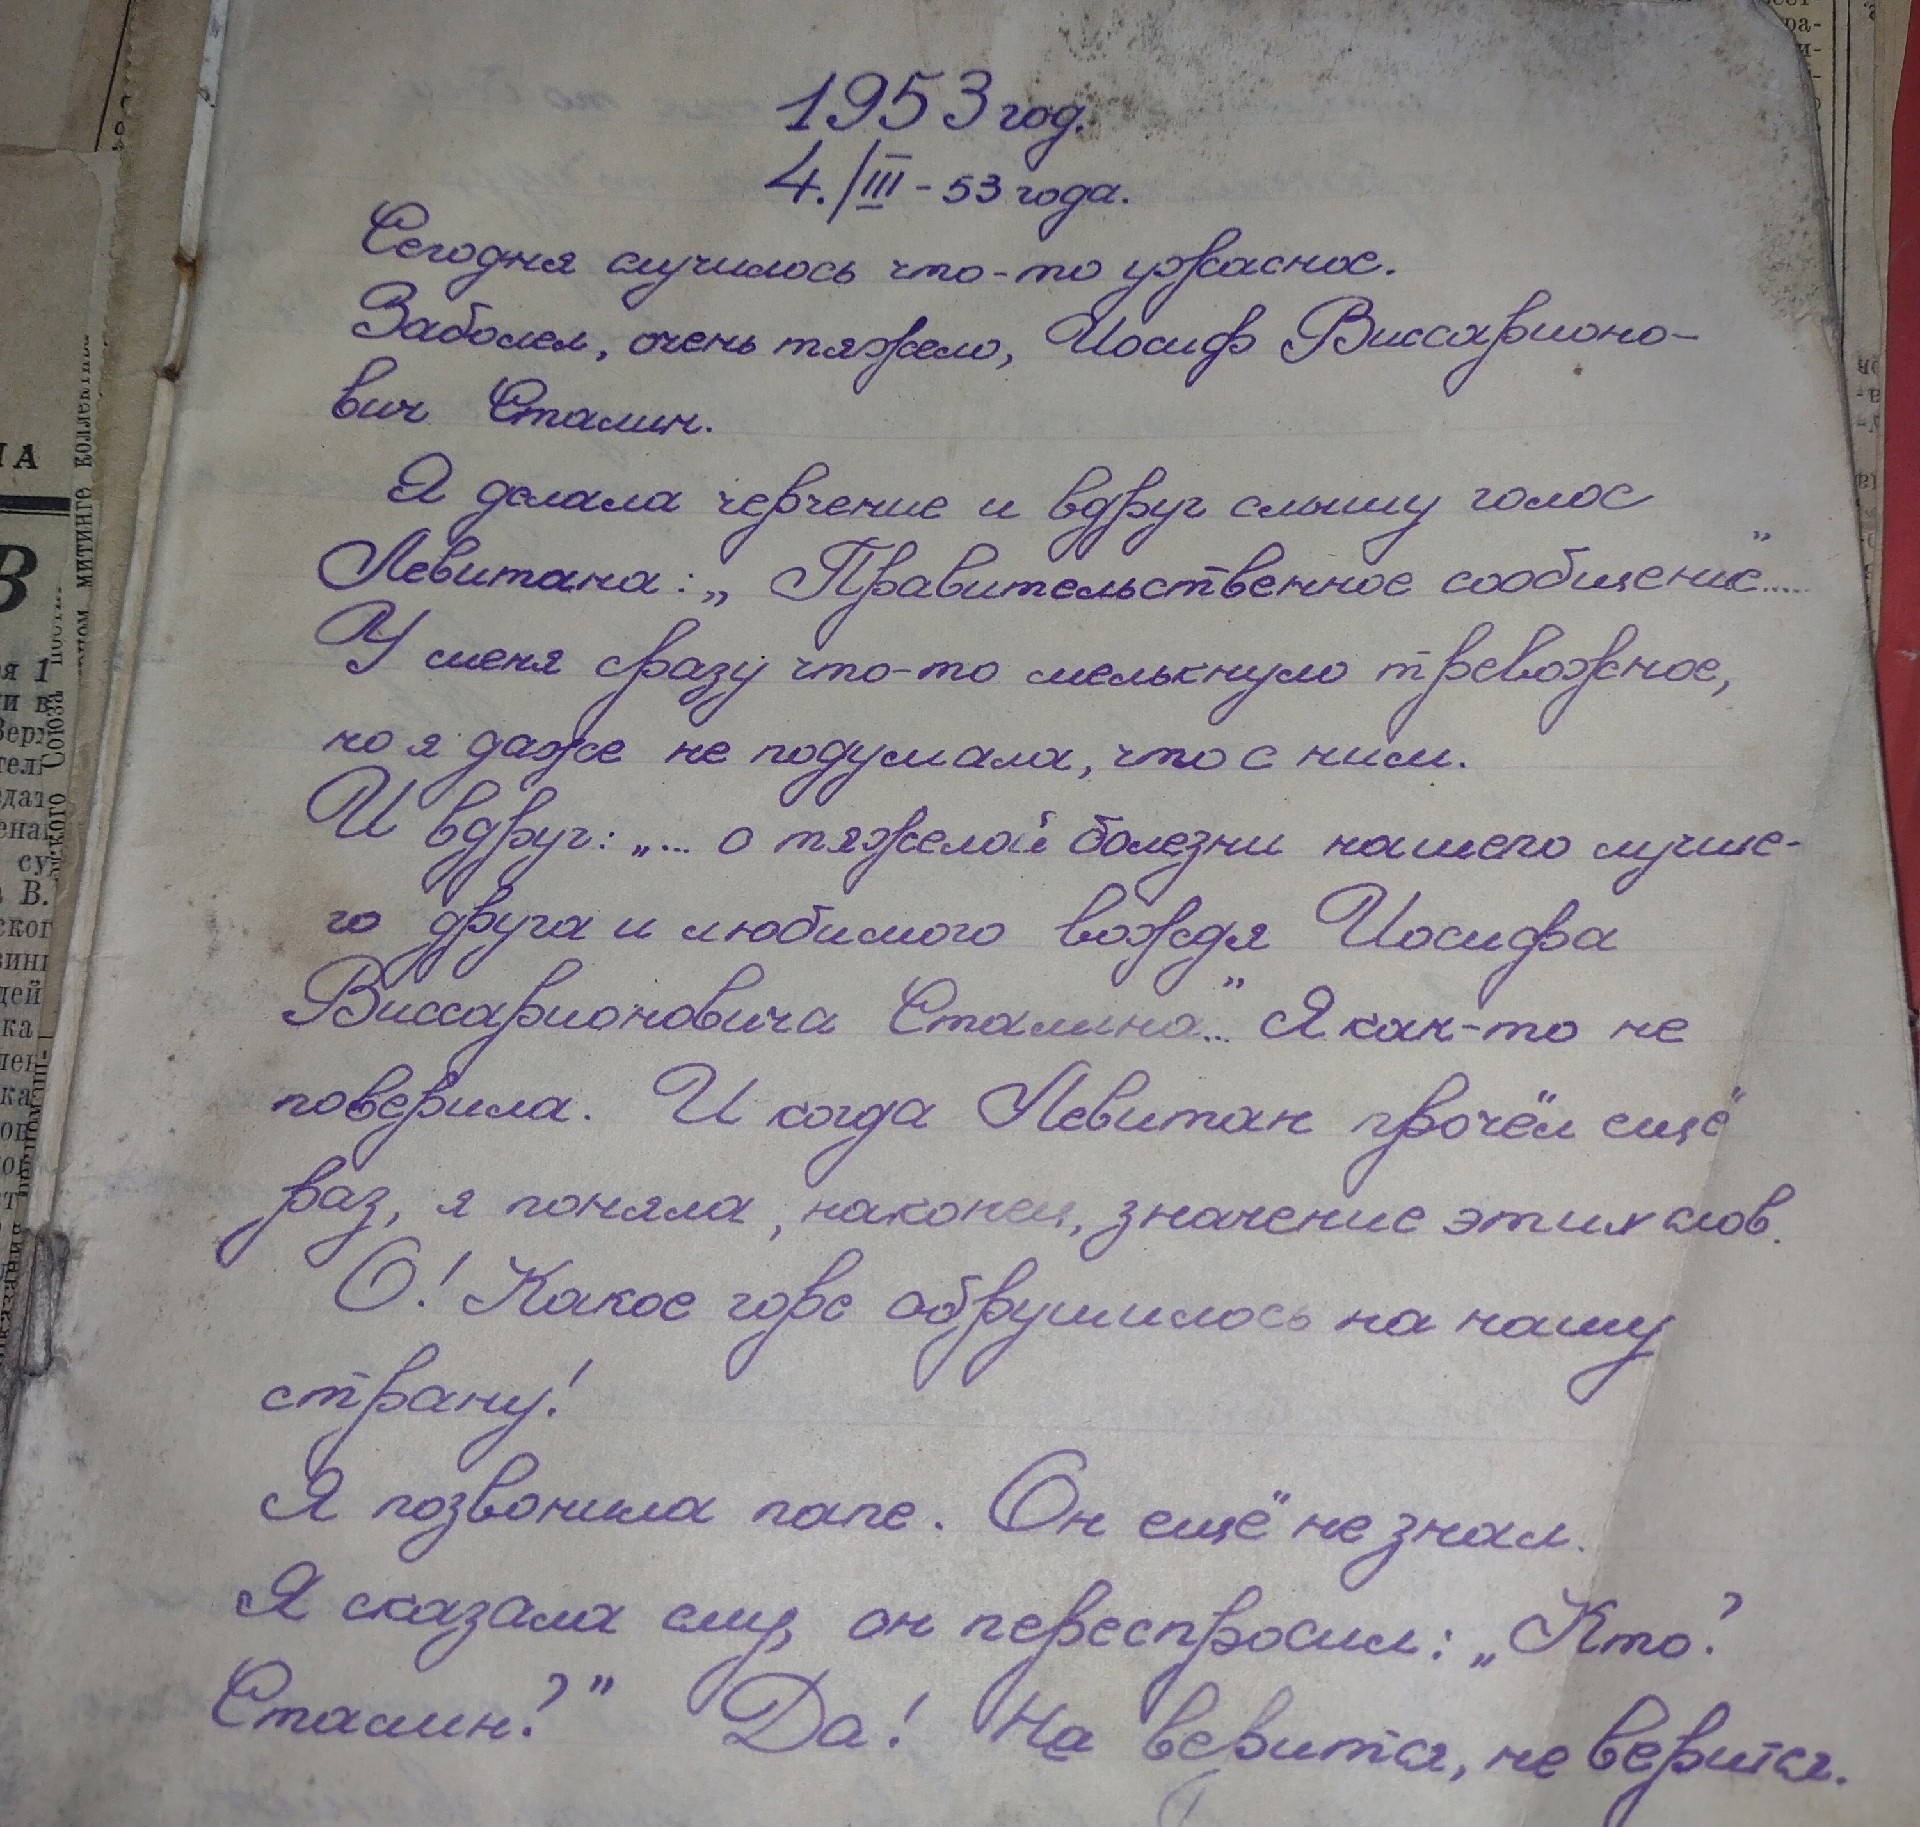 1953 год.
4./III - 53 года.
Сегодня случилось что-то ужасное.
Заболел, очень тяжело, Иосиф Виссарионо-
вич Сталин.
Я делала черчение и вдруг слышу голос
Левитана: „Правительственное сообщение”.....
У меня сразу что-то мелькнуло тревожное,
но я даже не подумала, что с ним.
И вдруг: „... о тяжелой болезни нашего лучше-
го друга и любимого вождя Иосифа
Виссарионовича Сталина...” Я как-то не
поверила. И когда Левитан прочёл ещё
раз, я поняла, наконец, значение этих слов.
О! Какое горе обрушилось на нашу
страну!
Я позвонила папе. Он ещё не знал.
Я сказала ему, он переспросил: „Кто?
Сталин?” Да! Не верится, не верится.
ИА
В
МИТИНГЕ
СОЮЗА